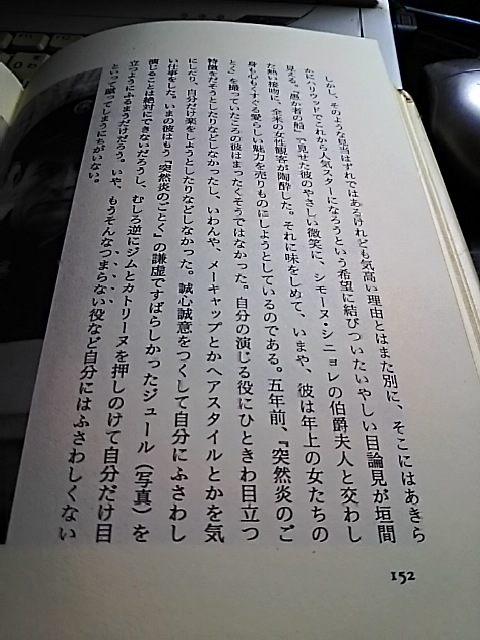 しかし、そのような見当はずれではあるけれども気高い理由とはまた別に、そこにはあきら
かにハリウッドでこれから人気スターになろうという希望に結びついたいやしい目論見が垣間
見える。『愚か者の船』で見せた彼のやさしい微笑に、シモーヌ・シニョレの伯爵夫人と交わし
た熱い接吻に、全米の女性観客が陶酔した。それに味をしめて、いまや、彼は年上の女たちの
身も心もくすぐる愛らしい魅力を売りものにしようとしているのである。五年前、『突然炎のご
とく』を撮っていたころの彼はまったくそうではなかった。自分の演じる役にひときわ目立つ
特徴をだそうとしたりなどしなかったし、いわんや、メーキャップとかヘアスタイルとかを気
にしたり、自分だけ楽をしようとしたりなどしなかった。誠心誠意をつくして自分にふさわし
い仕事をした。いまの彼はもう『突然炎のごとく』の謙虚ですばらしかったジュール（写真）を
演じることは絶対にできないだろうし、むしろ逆にジムとカトリーヌを押しのけて自分だけ目
立つようにふるまうだけだろう。いや、もうそんなつまらない役など自分にはふさわしくない
といって断ってしまうにちがいない。
152